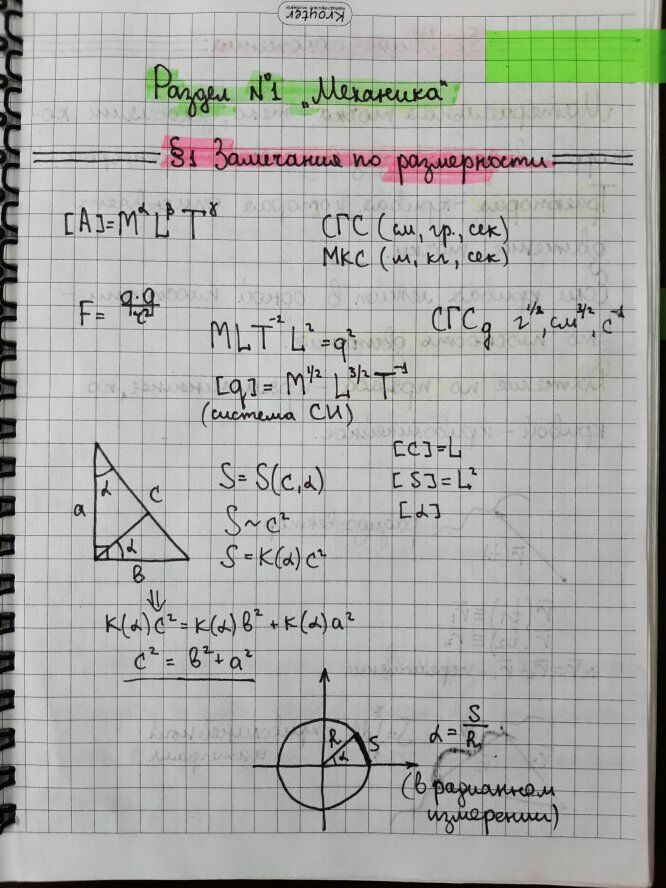 Kroyter
Раздел №1 „Механика“
§1 Замечания по размерности
[A]=M^α L^β T^γ
СГС (см, гр., сек)
МКС (м, кг, сек)
F = q·q/r²
MLT⁻² L² = q²
СГСq г^1/2, см^3/2, с⁻¹
[q] = M^1/2 L^3/2 T⁻¹
(система СИ)
a
α
c
α
в
S = S(c,α)
S ~ c²
S = K(α) c²
[C]=L
[S]=L²
[α]
⇓
K(α)c² = K(α)в² + K(α)a²
c² = в² + a²
R
α
S
α = S/R
(в радианном
измерении)